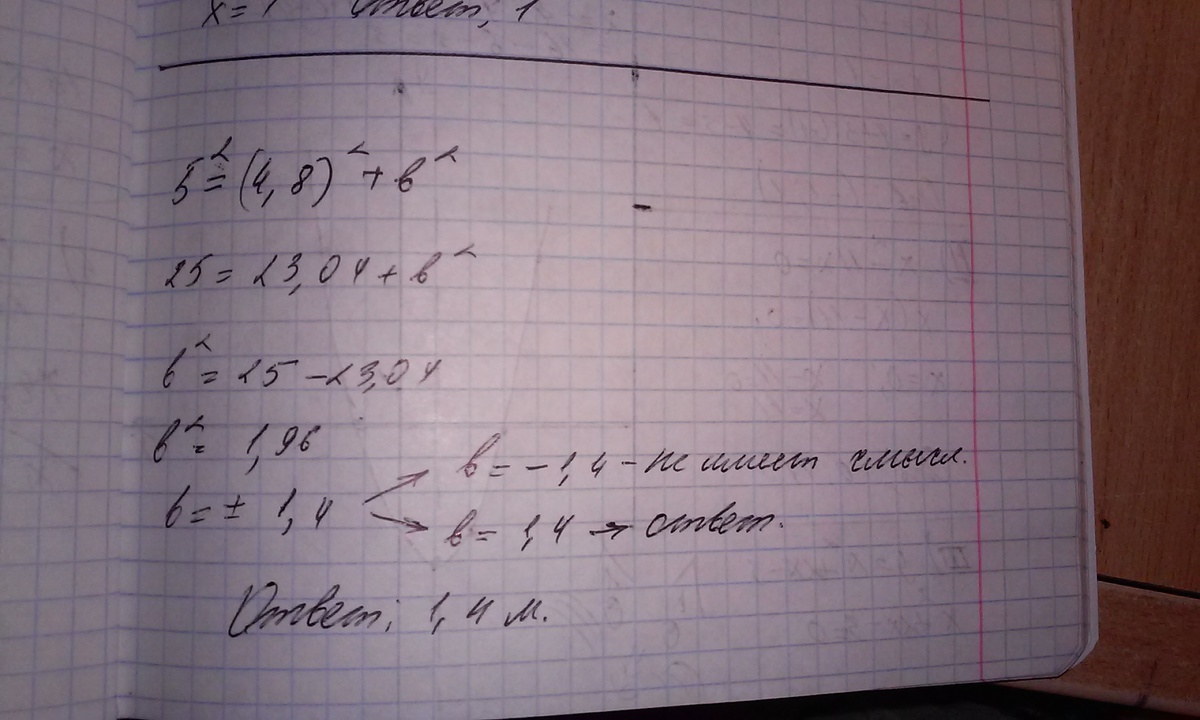 x = 1 Ответ, 1
5² = (4,8)² + в²
25 = 23,04 + в²
в² = 25 - 23,04
в² = 1,96
в = ± 1,4
в = - 1,4 - не имеет смысл.
в = 1,4 → ответ.
Ответ: 1,4 м.